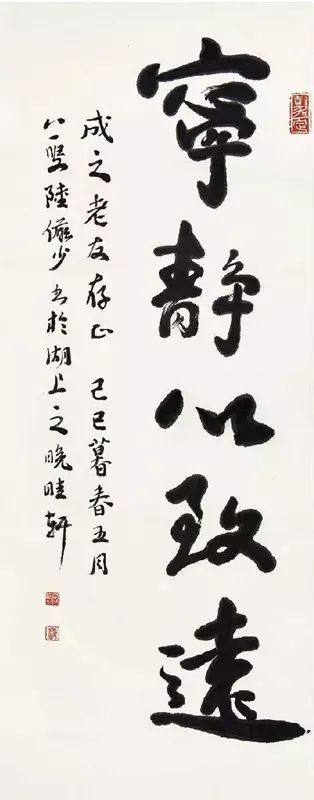 寧静以致遠
成之老友存正 己巳暮春五月
八一叟陸儼少書於湖上之晚晴軒